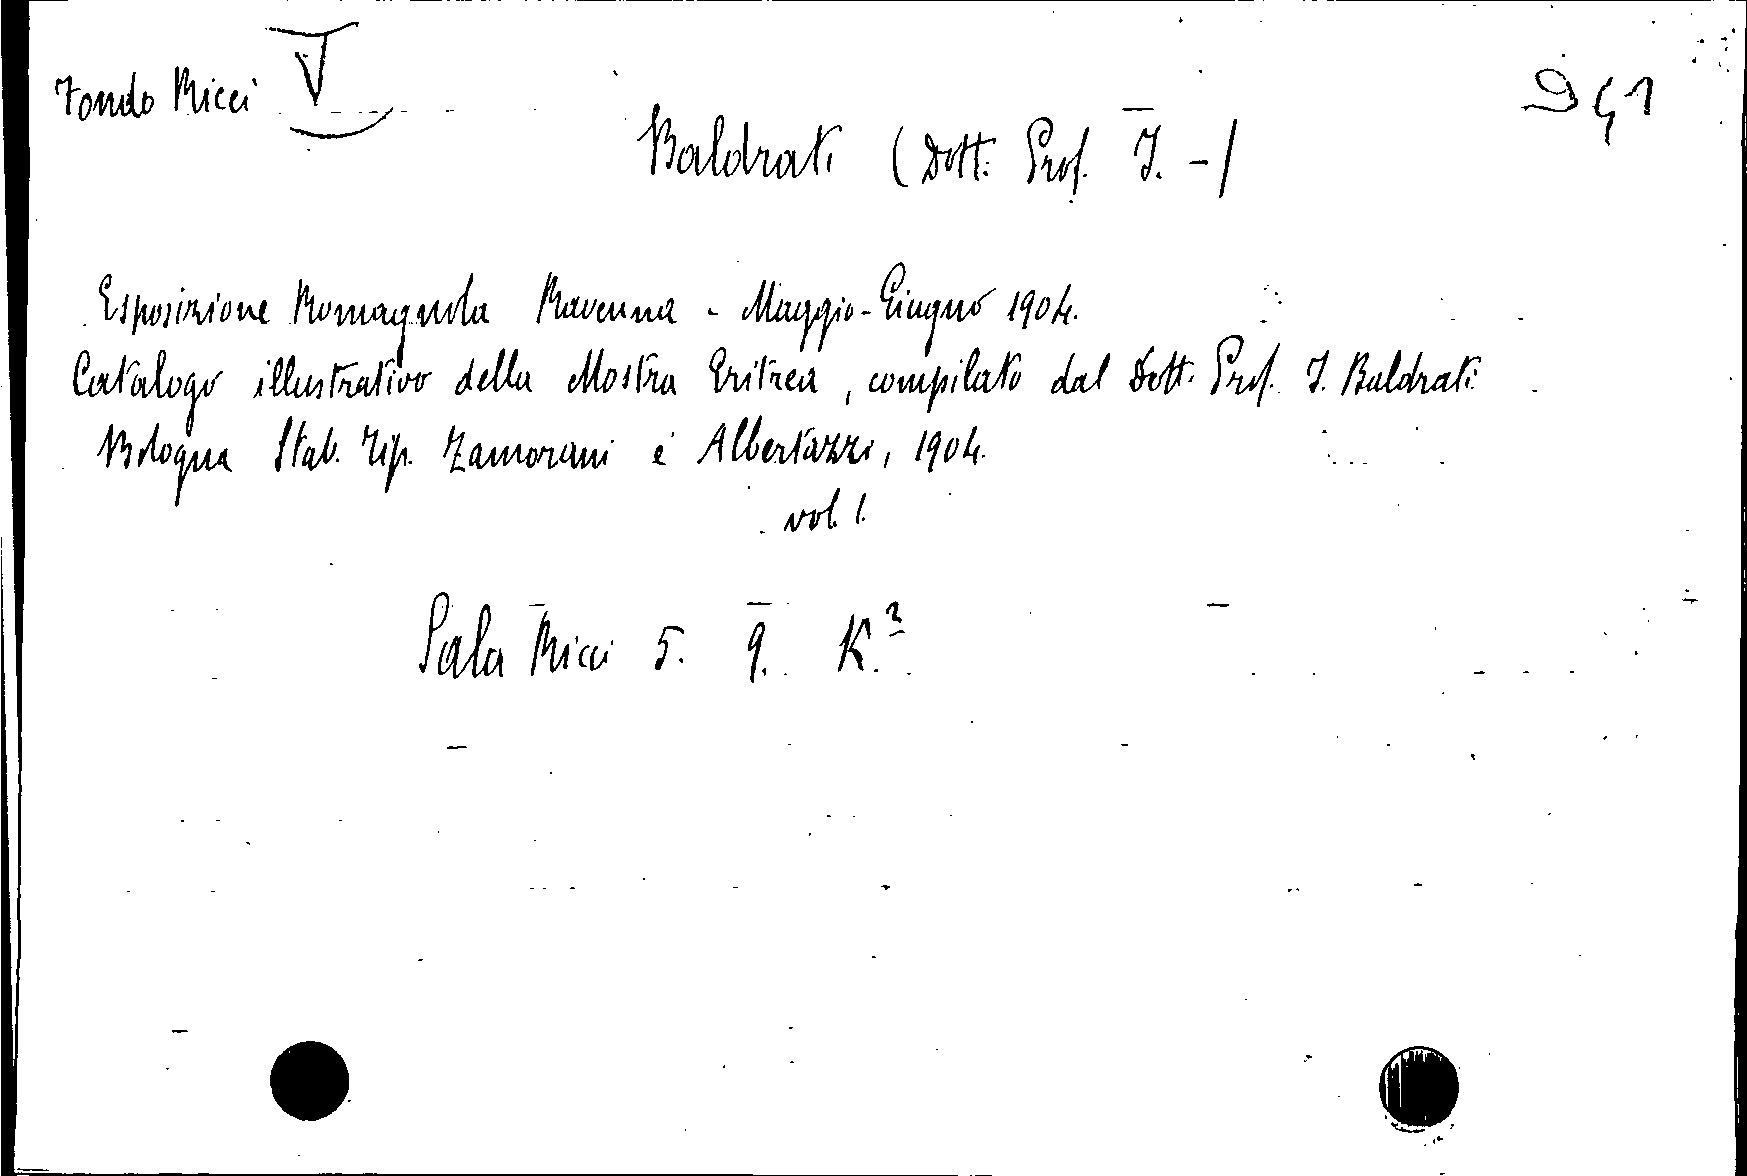 Fondo Ricci V
941
Baldrati (Dott. Prof. I. -)
Esposizione Romagnola Ravenna - Maggio-Giugno 1904.
Catalogo illustrativo della Mostra Eritrea, compilato dal Dott. Prof. I. Baldrati
Bologna Stab. Tip. Zamorani e Albertazzi, 1904.
vol. 1.
Sala Ricci 5. 9. K.²